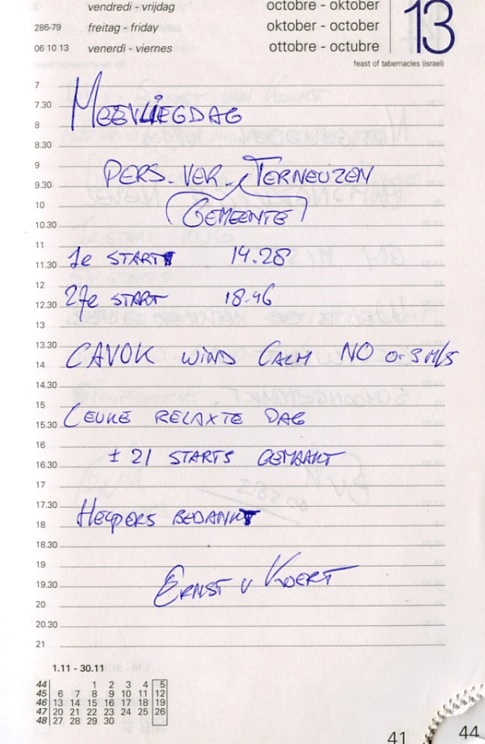 vendredi - vrijdag octobre - oktober
286-79 freitag - friday oktober - october
06 10 13 venerdi - viernes ottobre - octubre
13
feast of tabernacles (israel)
7
7.30 MEEVLIEGDAG
8
8.30
9 PERS. VER. TERNEUZEN
9.30
10 (GEMEENTE)
10.30
11
11.30 1e START 14.28
12
12.30 27e START 18.46
13
13.30 CAVOK WIND CALM NO 0-3 M/S
14
14.30
15 LEUKE RELAXTE DAG
15.30
16 ± 21 STARTS GEMAAKT
16.30
17
17.30 HELPERS BEDANKT
18
18.30
19 ERNST V
19.30
20
20.30
21
1.11 - 30.11
44 1 2 3 4 5
45 6 7 8 9 10 11 12
46 13 14 15 16 17 18 19
47 20 21 22 23 24 25 26
48 27 28 29 30
41 44